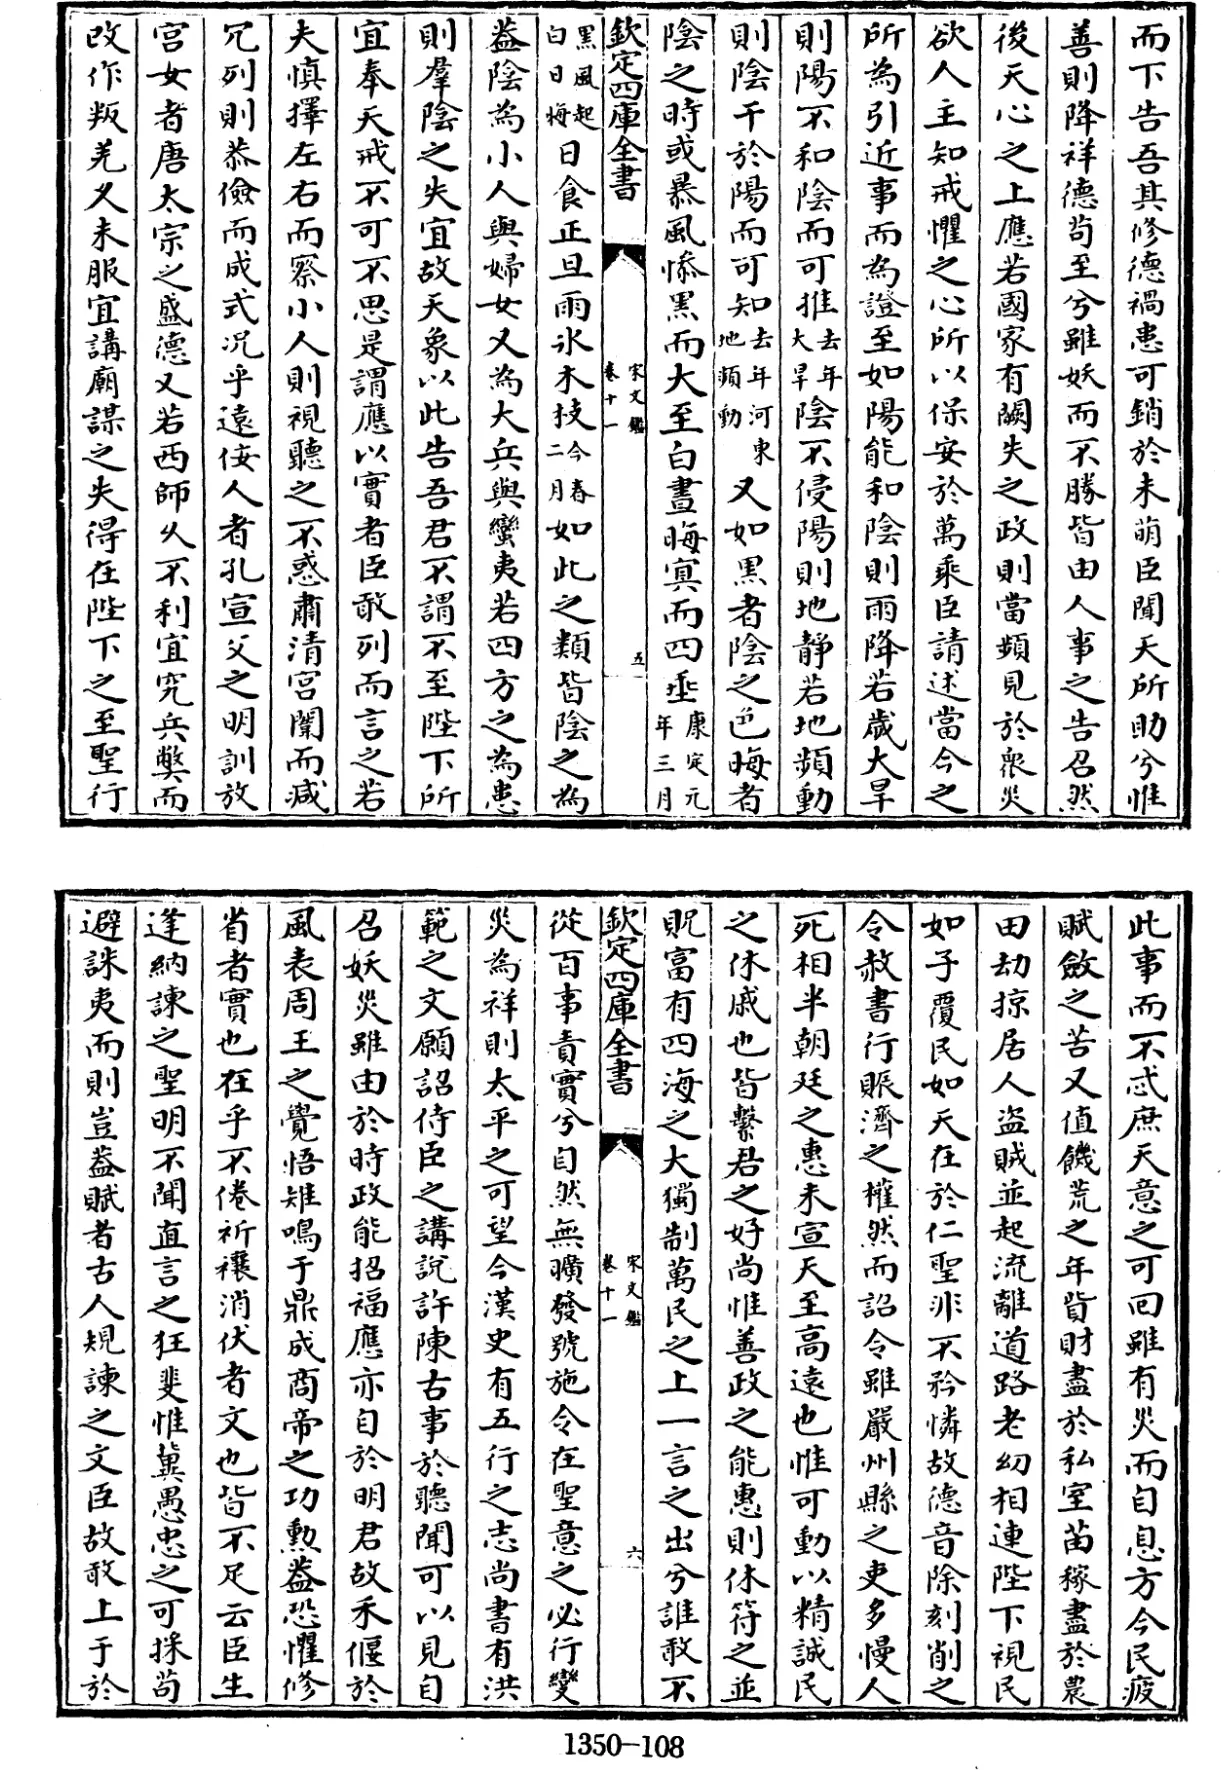 而下告吾其修德禍患可銷於未萌臣聞天所助兮惟
善則降祥德苟至兮雖妖而不勝皆由人事之告召然
後天心之上應若國家有闕失之政則當頻見於衆災
欲人主知戒懼之心所以保安於萬乘臣請述當今之
所為引近事而為證至如陽能和陰則雨降若歲大旱
則陽不和陰而可推去年大旱陰不侵陽則地靜若地頻動
則陰干於陽而可知去年河東地頻動又如黑者陰之色晦者
陰之時或暴風慘黑而大至白晝晦冥而四垂康定元年三月
欽定四庫全書
宋文鑑
卷十一
五
黑風起白日晦日食正旦雨氷木枝今春二月如此之類皆陰之為
葢陰為小人與婦女又為大兵與蠻夷若四方之為患
則羣陰之失宜故天象以此告吾君不謂不至陛下所
宜奉天戒不可不思是謂應以實者臣敢列而言之若
夫慎擇左右而察小人則視聽之不惑肅清宮闈而減
冗列則恭儉而成式況乎遠佞人者孔宣父之明訓放
宮女者唐太宗之盛德又若西師久不利宜究兵弊而
改作叛羌又未服宜講廟謀之失得在陛下之至聖行
此事而不忒庶天意之可囘雖有災而自息方今民疲
賦斂之苦又值饑荒之年貲財盡於私室苗稼盡於農
田劫掠居人盜賊並起流離道路老幼相連陛下視民
如子覆民如天在於仁聖非不矜憐故德音除刻削之
令赦書行賑濟之權然而詔令雖嚴州縣之吏多慢人
死相半朝廷之惠未宣天至高遠也惟可動以精誠民
之休戚也皆繫君之好尚惟善政之能惠則休符之並
貺富有四海之大獨制萬民之上一言之出兮誰敢不
欽定四庫全書
宋文鑑
卷十一
六
從百事責實兮自然無曠發號施令在聖意之必行變
災為祥則太平之可望今漢史有五行之志尚書有洪
範之文願詔侍臣之講說許陳古事於聽聞可以見自
召妖災雖由於時政能招福應亦自於明君故禾偃於
風表周王之覺悟雉鳴于鼎成商帝之功勲葢恐懼修
省者實也在乎不倦祈禳消伏者文也皆不足云臣生
逢納諫之聖明不聞直言之狂斐惟冀愚忠之可採苟
避誅夷而則豈葢賦者古人規諫之文臣故敢上于於